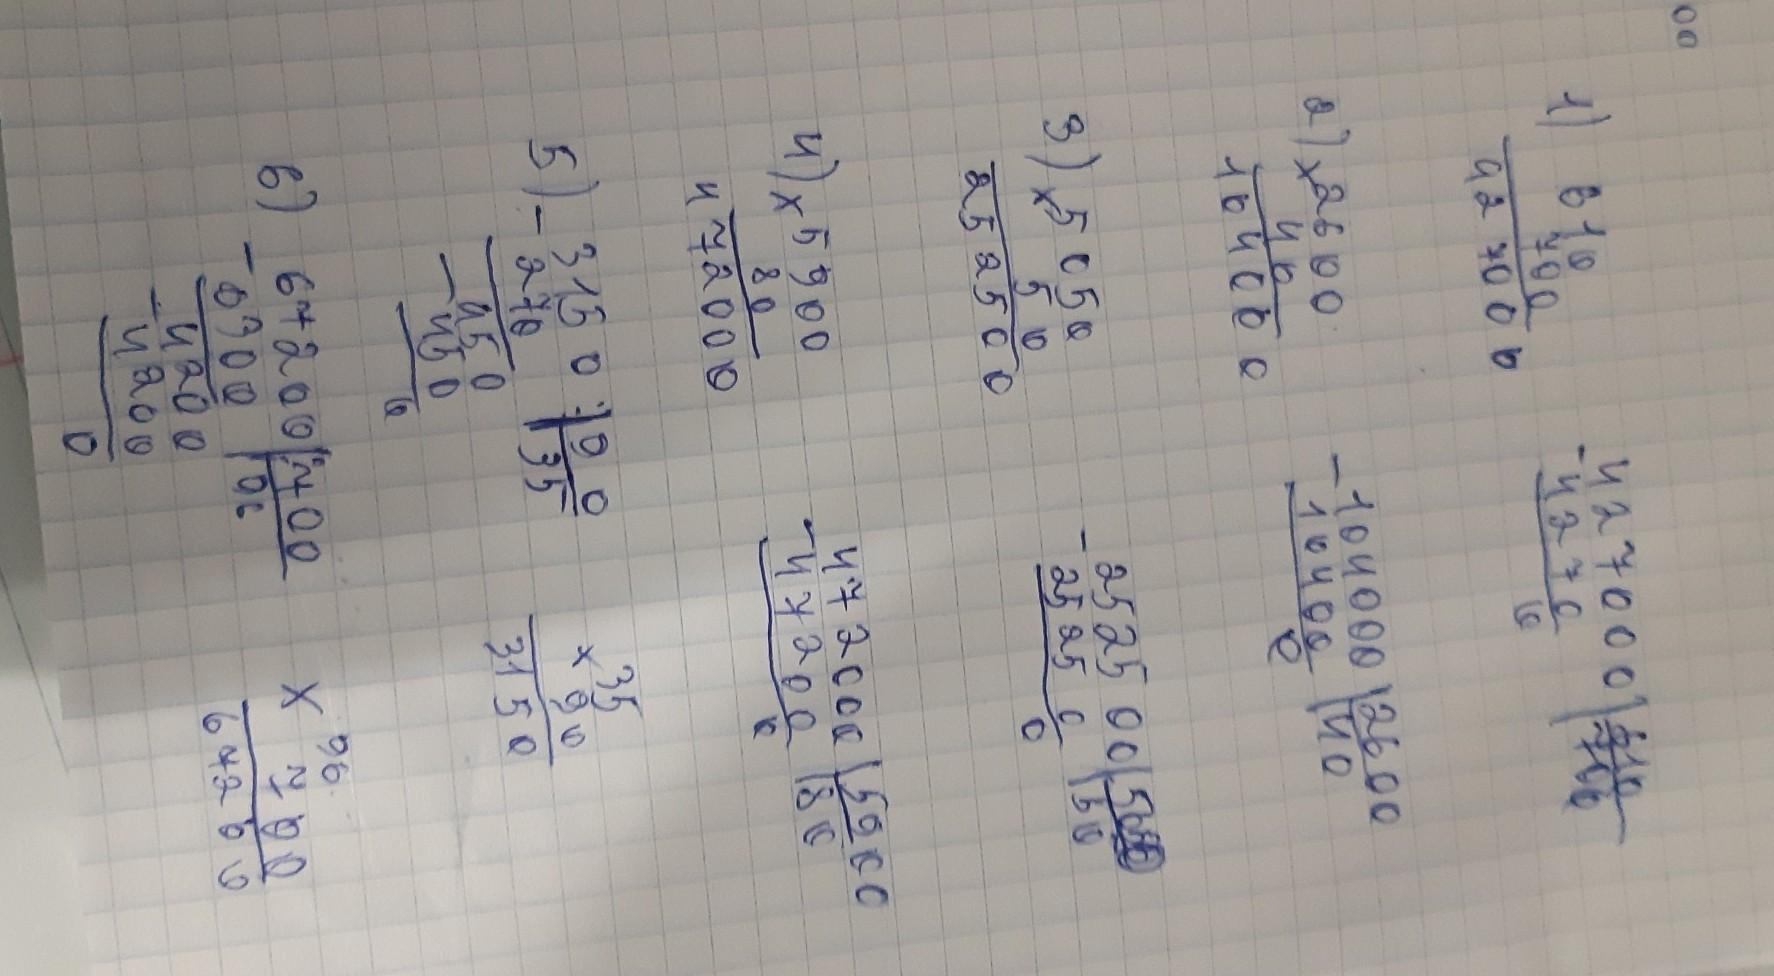 00
1) 610
700
427000
427000 | 610
- 4270 | 700
0
2) × 2600
40
104000
- 104000 | 2600
10400 | 40
0
3) × 5050
50
252500
- 252500 |
25250 | 50
0
4) × 5900
80
472000
- 472000 | 5900
47200 | 80
0
5) - 3150 : | 90
270 | 35
- 450
450
0
35
× 90
3150
6) 67200 : | 700
- 6300 | 96
- 4200
4200
0
× 96
700
67200